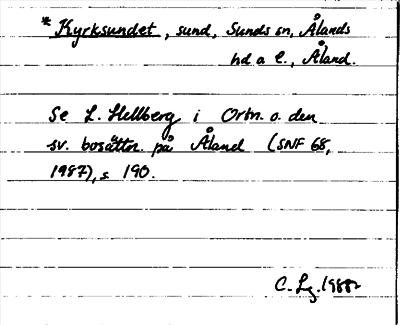 * Kyrksundet, sund, Sunds sn, Ålands
hd a l., Åland.
Se L. Hellberg i Ortn. o. den
sv. bosättn. på Åland (SNF 68,
1987), s 190.
C. Lg. 1988